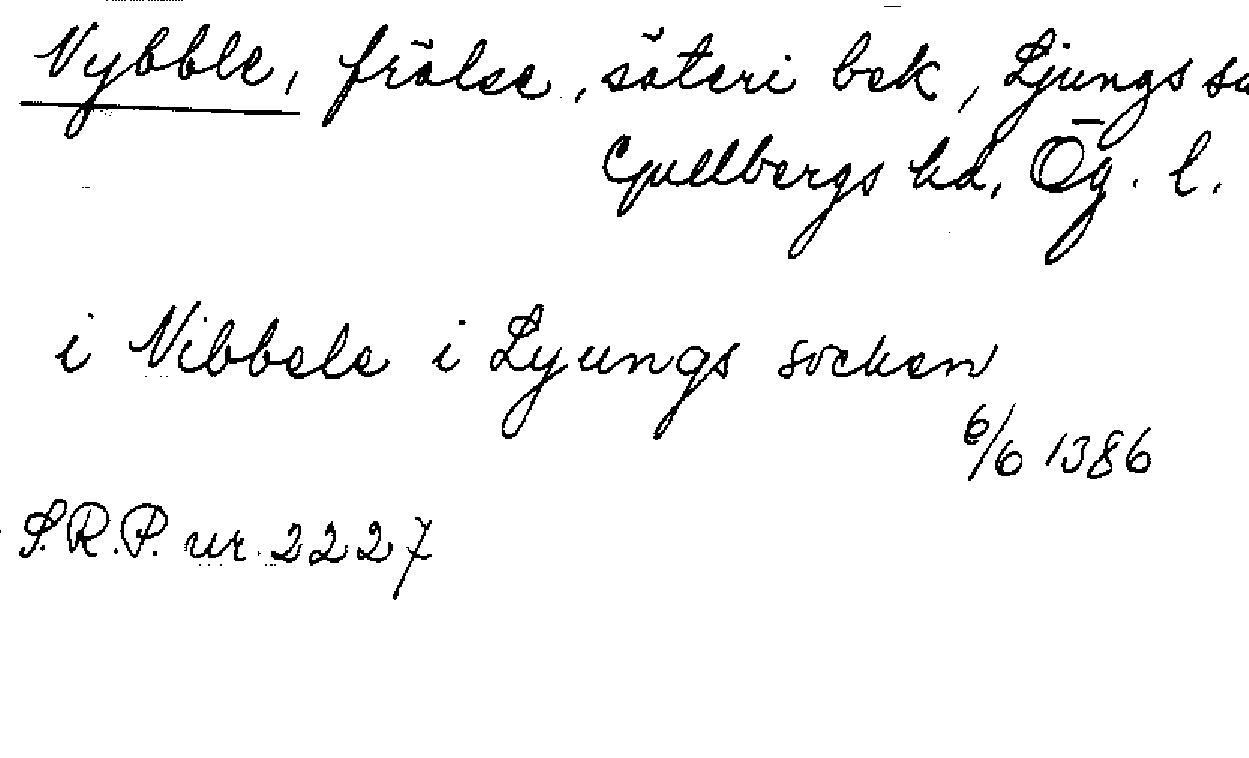 Vybble, frälse, säteri bek, Ljungs su
Gullbergs hd, Ög. l.
i Vibbele i Lyungs socken
6/6 1386
S.R.P. nr. 2227